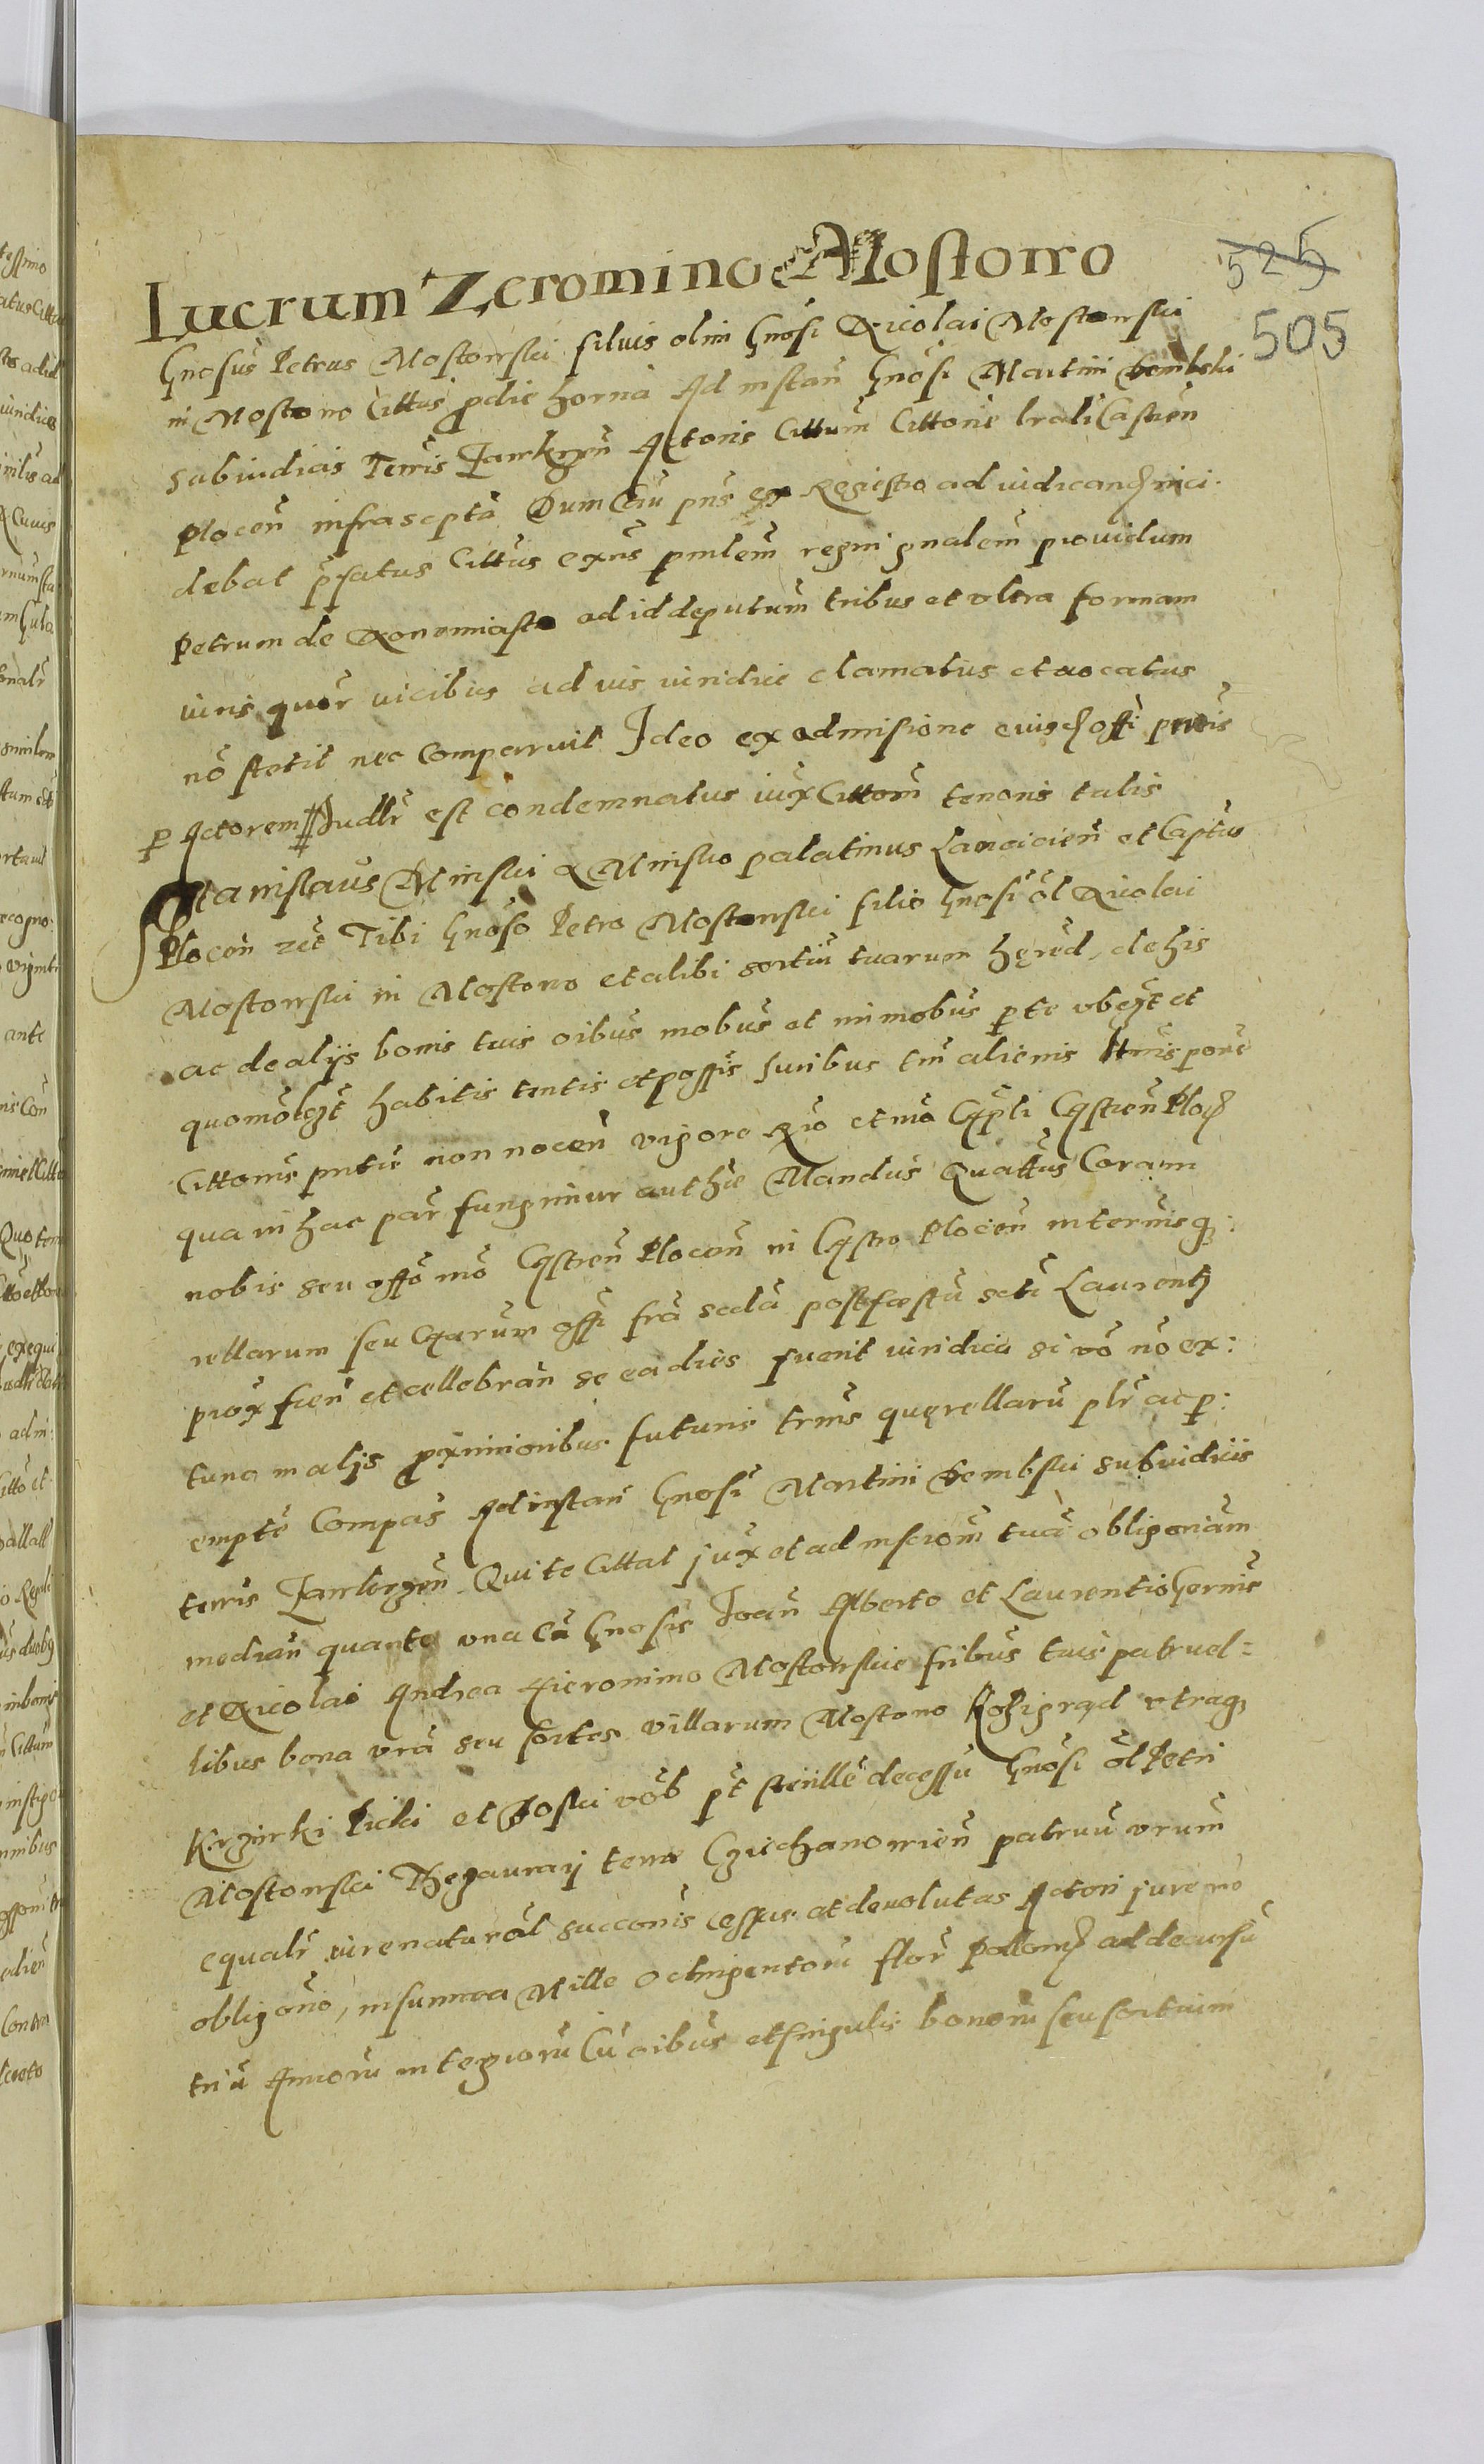 Lucrum Zeromino Mostowo
525
505
Gnosus Petrus Mostowski filius olim Gnosi Nicolai Mostowski
in Mostowo Cittus pdie horna Ad instan Gnosi Martini Dembski
subiudicis Terris Zawkrzen Actoris Cittum Cittonis lrali Castren
Plocen infrascpta Dum Cau pns ex Regestro ad iudicand inci
debat pfatus Cittus exns pmlem regni gnalem prouidum
Petrum de Xonomiasto ad id deputum tribus et vltra formam
iuris quor vicibus ad ius iuridice clamatus et vocatus
no stetit nec Comparruit Ideo ex admissione eiusd offi pntis
p Actorem Judlr est condemnatus iux Cittom tenoris talis
Stanislaus Minski a Minsko palatinus Lancicien et Captus
Plocen zct Tibi Gnoso Petro Mostowski filio Gnosi ol Nicolai
Mostowski in Mostowo et alibi sortiu tuarum hęred, de his
ac de alijs bonis tuis oibus mobus et immobus p te vbczt et
quomolczt habitis tentis et possis Juribus tm alienis ttnis pore
Cittonis pntis non nocen vigore Rio et mo Cap̃li Cstren Ploc
qua in hac par fungimur authe Mandus Quattus Coram
nobis seu offo mo Cstren Plocen in Cstro Plocen in ternis q:
rellarum seu Carum offi fra scda post festu scti Laurentj
prox fien et cellebran se ea dies fuerit iuridica si vo no ex:
tunc in alijs pximioribus futuris trms quęrellaru plr ac p:
empte Compas Ad instan Gnosi Martini Dembski subiudicis
terris Zawkrzen Qui te Cittat jux et ad inscrom tuã obligoriam
median quante vna Cũ Gnosis Joan Alberto et Laurentio Gernis
et Nicolai Andrea Hieronimo Mostowskie fribus tuis patruel=
libus bona vra seu sortes villarum Mostowo Kozigrąd vtraq
Krzirki Picki et Zoski vob pt steille decessu Gnosi ol Petri
Mostowski Thezaurarij terre Cziechanowien patruu vrum
equalr iure natural succonis cessus et deuolutas Actori jure mo
obligono, in summa Mille octingentoru flor Pollond ad decursu
triu Annoru integroru Cu oibus et singulis bonoru seu sortium